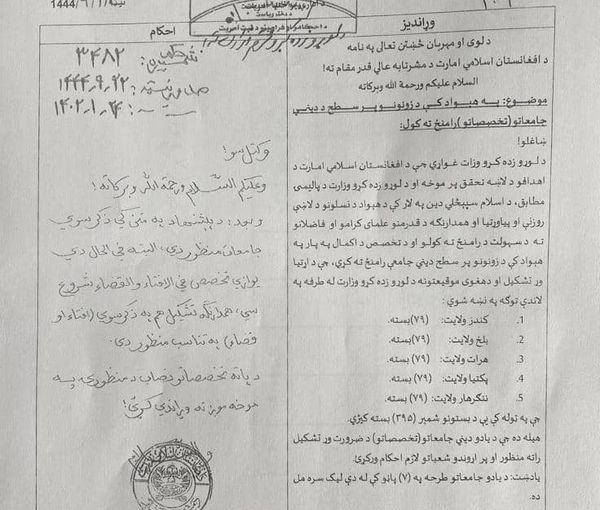 وړاندیز
د لوی او مهربان څښتن تعالی په نامه
د افغانستان اسلامي امارت د مشرتابه عالي قدر مقام ته!
السلام علیکم ورحمة الله وبرکاته
موضوع: په هېواد کې د زونونو پر سطح د دیني
جامعاتو (تخصصاتو) رامنځ ته کول:
ښاغلو!
د لوړو زده کړو وزات غواړي چې د افغانستان اسلامي امارت د
اهدافو د لاښه تحقق پر موخه او د لوړو زده کړو وزارت د پالیسۍ
مطابق، د اسلام سپېڅلي دین په لار کې د هېواد د نسلونو د لاښې
روزنې او پیاوړتیا او همدارنګه د قدرمنو علمای کرامو او فاضلانو
ته د سهولت د رامنځ ته کولو او د تخصص د اکمال په پار په
هېواد کې د زونونو پر سطح دیني جامعې رامنځ ته کړي، چې د اړتیا
وړ تشکیل او دهغوی موقیعتونه د لوړو زده کړو وزارت له طرفه په
لاندې توګه په نښه شوي:
1. کندز ولایت: (۷۹) بسته.
2. بلخ ولایت: (۷۹) بسته.
3. هرات ولایت: (۷۹) بسته.
4. پکتیا ولایت: (۷۹) بسته.
5. ننګرهار ولایت: (۷۹) بسته.
چې په ټوله کې یې د بستونو شمېر (۳۹۵) بسته کیږي.
هیله ده چې د یادو دیني جامعاتو (تخصصاتو) د ضرورت وړ تشکیل
راته منظور او پر اړوندو شعباتو لازم احکام ورکړئ.
یادښت: د یادو جامعاتو طرحه په (۷) پاڼو کې له دې لیک سره مل
ده.
احکام
1444/
۳۴۸۲
۱۴۴۴٫۹٫۲۲
۱۴۰۲٫۱٫۲۴
وکتل سو!
وعلیکم السلام ورحمة الله وبرکاته!
وبعد: د پېشنهاد په متن کې ذکر سوي
جامعات منظور دي، البته في الحال دي
یوازي تخصص في الافتاء والقضاء شروع
سي، همدارنګه تشکیل هم په ذکر سوي (افتاء او
قضاء) په تناسب منظور دی.
د پاته تخصصاتو نصاب د منظورۍ په
موخه موږ ته وړاندي کړئ!